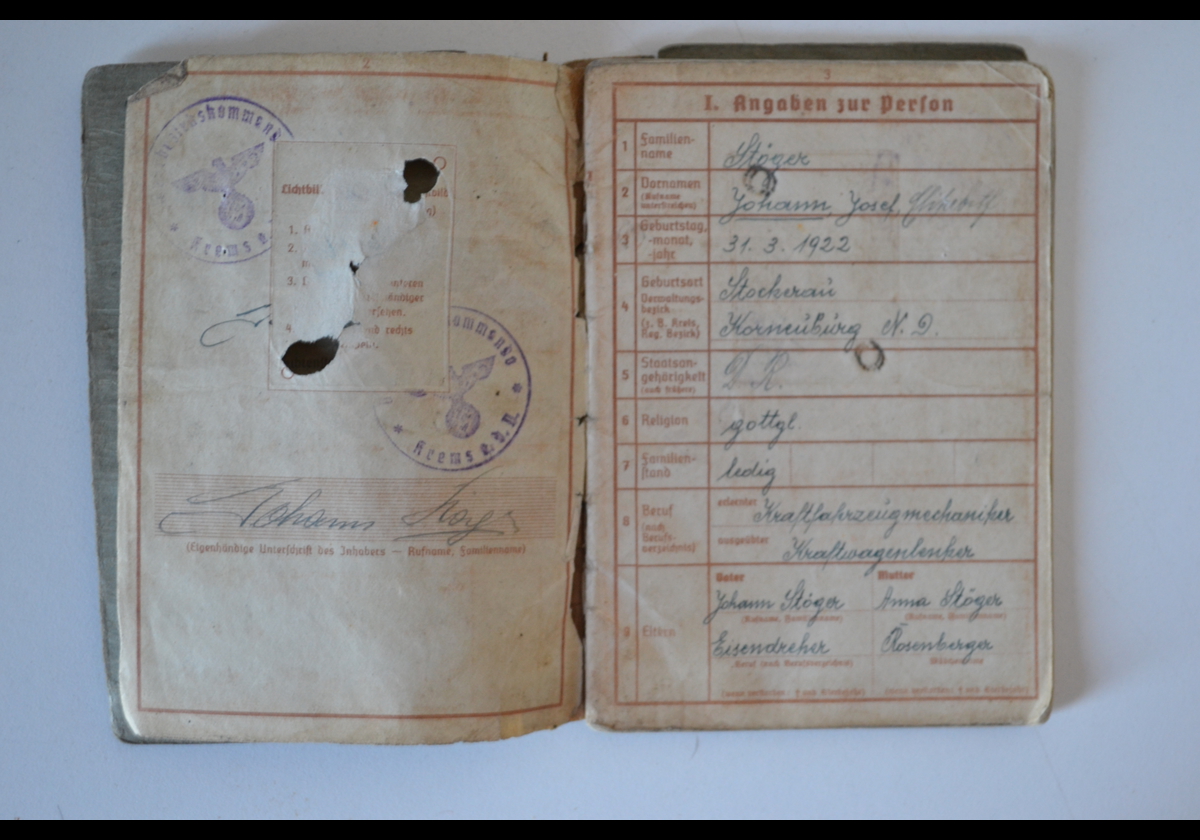 2
Krems a.
Lichtbil
1.
2.
3.
nteren
4.
nd rechts
Krems a. d. D.
Johann Stöger
(Eigenhändige Unterschrift des Inhabers — Rufname, Familienname)
3
I. Angaben zur Person
1 Familien-
name
Stöger
2 Vornamen
(Rufname
unterstreichen)
Johann, Josef
3 Geburtstag,
-monat,
-jahr
31. 3. 1922
4 Geburtsort
Stockerau
Verwaltungs-
bezirk
(z. B. Kreis,
Reg. Bezirk)
Korneuburg N. D.
5 Staatsan-
gehörigkeit
(auch frühere)
D. R.
6 Religion
gottgl.
7 Familien-
stand
ledig
8 Beruf
(nach
Berufs-
verzeichnis)
erlernter Kraftfahrzeugmechaniker
ausgeübter Kraftwagenlenker
9 Eltern
Vater Mutter
Johann Stöger Anna Stöger
(Rufname, Familienname) (Rufname, Familienname)
Eisendreher Rosenberger
Beruf (nach Berufsverzeichnis) Mädchenname
(wenn verstorben: † und Sterbejahr) (wenn verstorben: † und Sterbejahr)